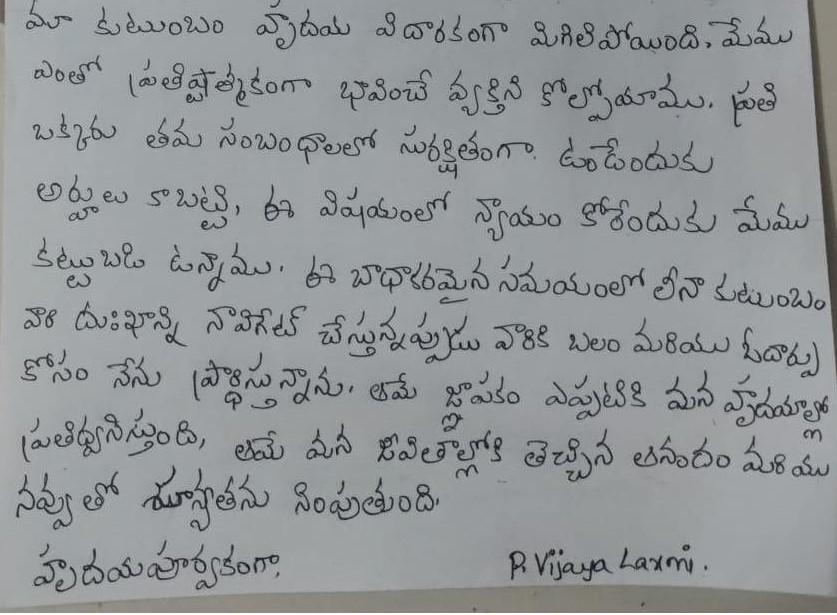 మా కుటుంబం హృదయ విదారకంగా మిగిలిపోయింది, మేము
ఎంతో ప్రతిష్టాత్మకంగా భావించే వ్యక్తిని కోల్పోయాము. ప్రతి
ఒక్కరు తమ సంబంధాలలో సురక్షితంగా ఉండేందుకు
అర్హులు కాబట్టి, ఈ విషయంలో న్యాయం కోరేందుకు మేము
కట్టుబడి ఉన్నాము. ఈ బాధాకరమైన సమయంలో లీనా కుటుంబం
వారి దుఃఖాన్ని నావిగేట్ చేస్తున్నప్పుడు వారికి బలం మరియు ఓదార్పు
కోసం నేను ప్రార్థిస్తున్నాను. ఆమె జ్ఞాపకం ఎప్పటికి మన హృదయాల్లో
ప్రతిధ్వనిస్తుంది, ఆమె మన జీవితాల్లోకి తెచ్చిన ఆనందం మరియు
నవ్వుతో శూన్యతను నింపుతుంది.
హృదయపూర్వకంగా, P. Vijaya Laxmi.